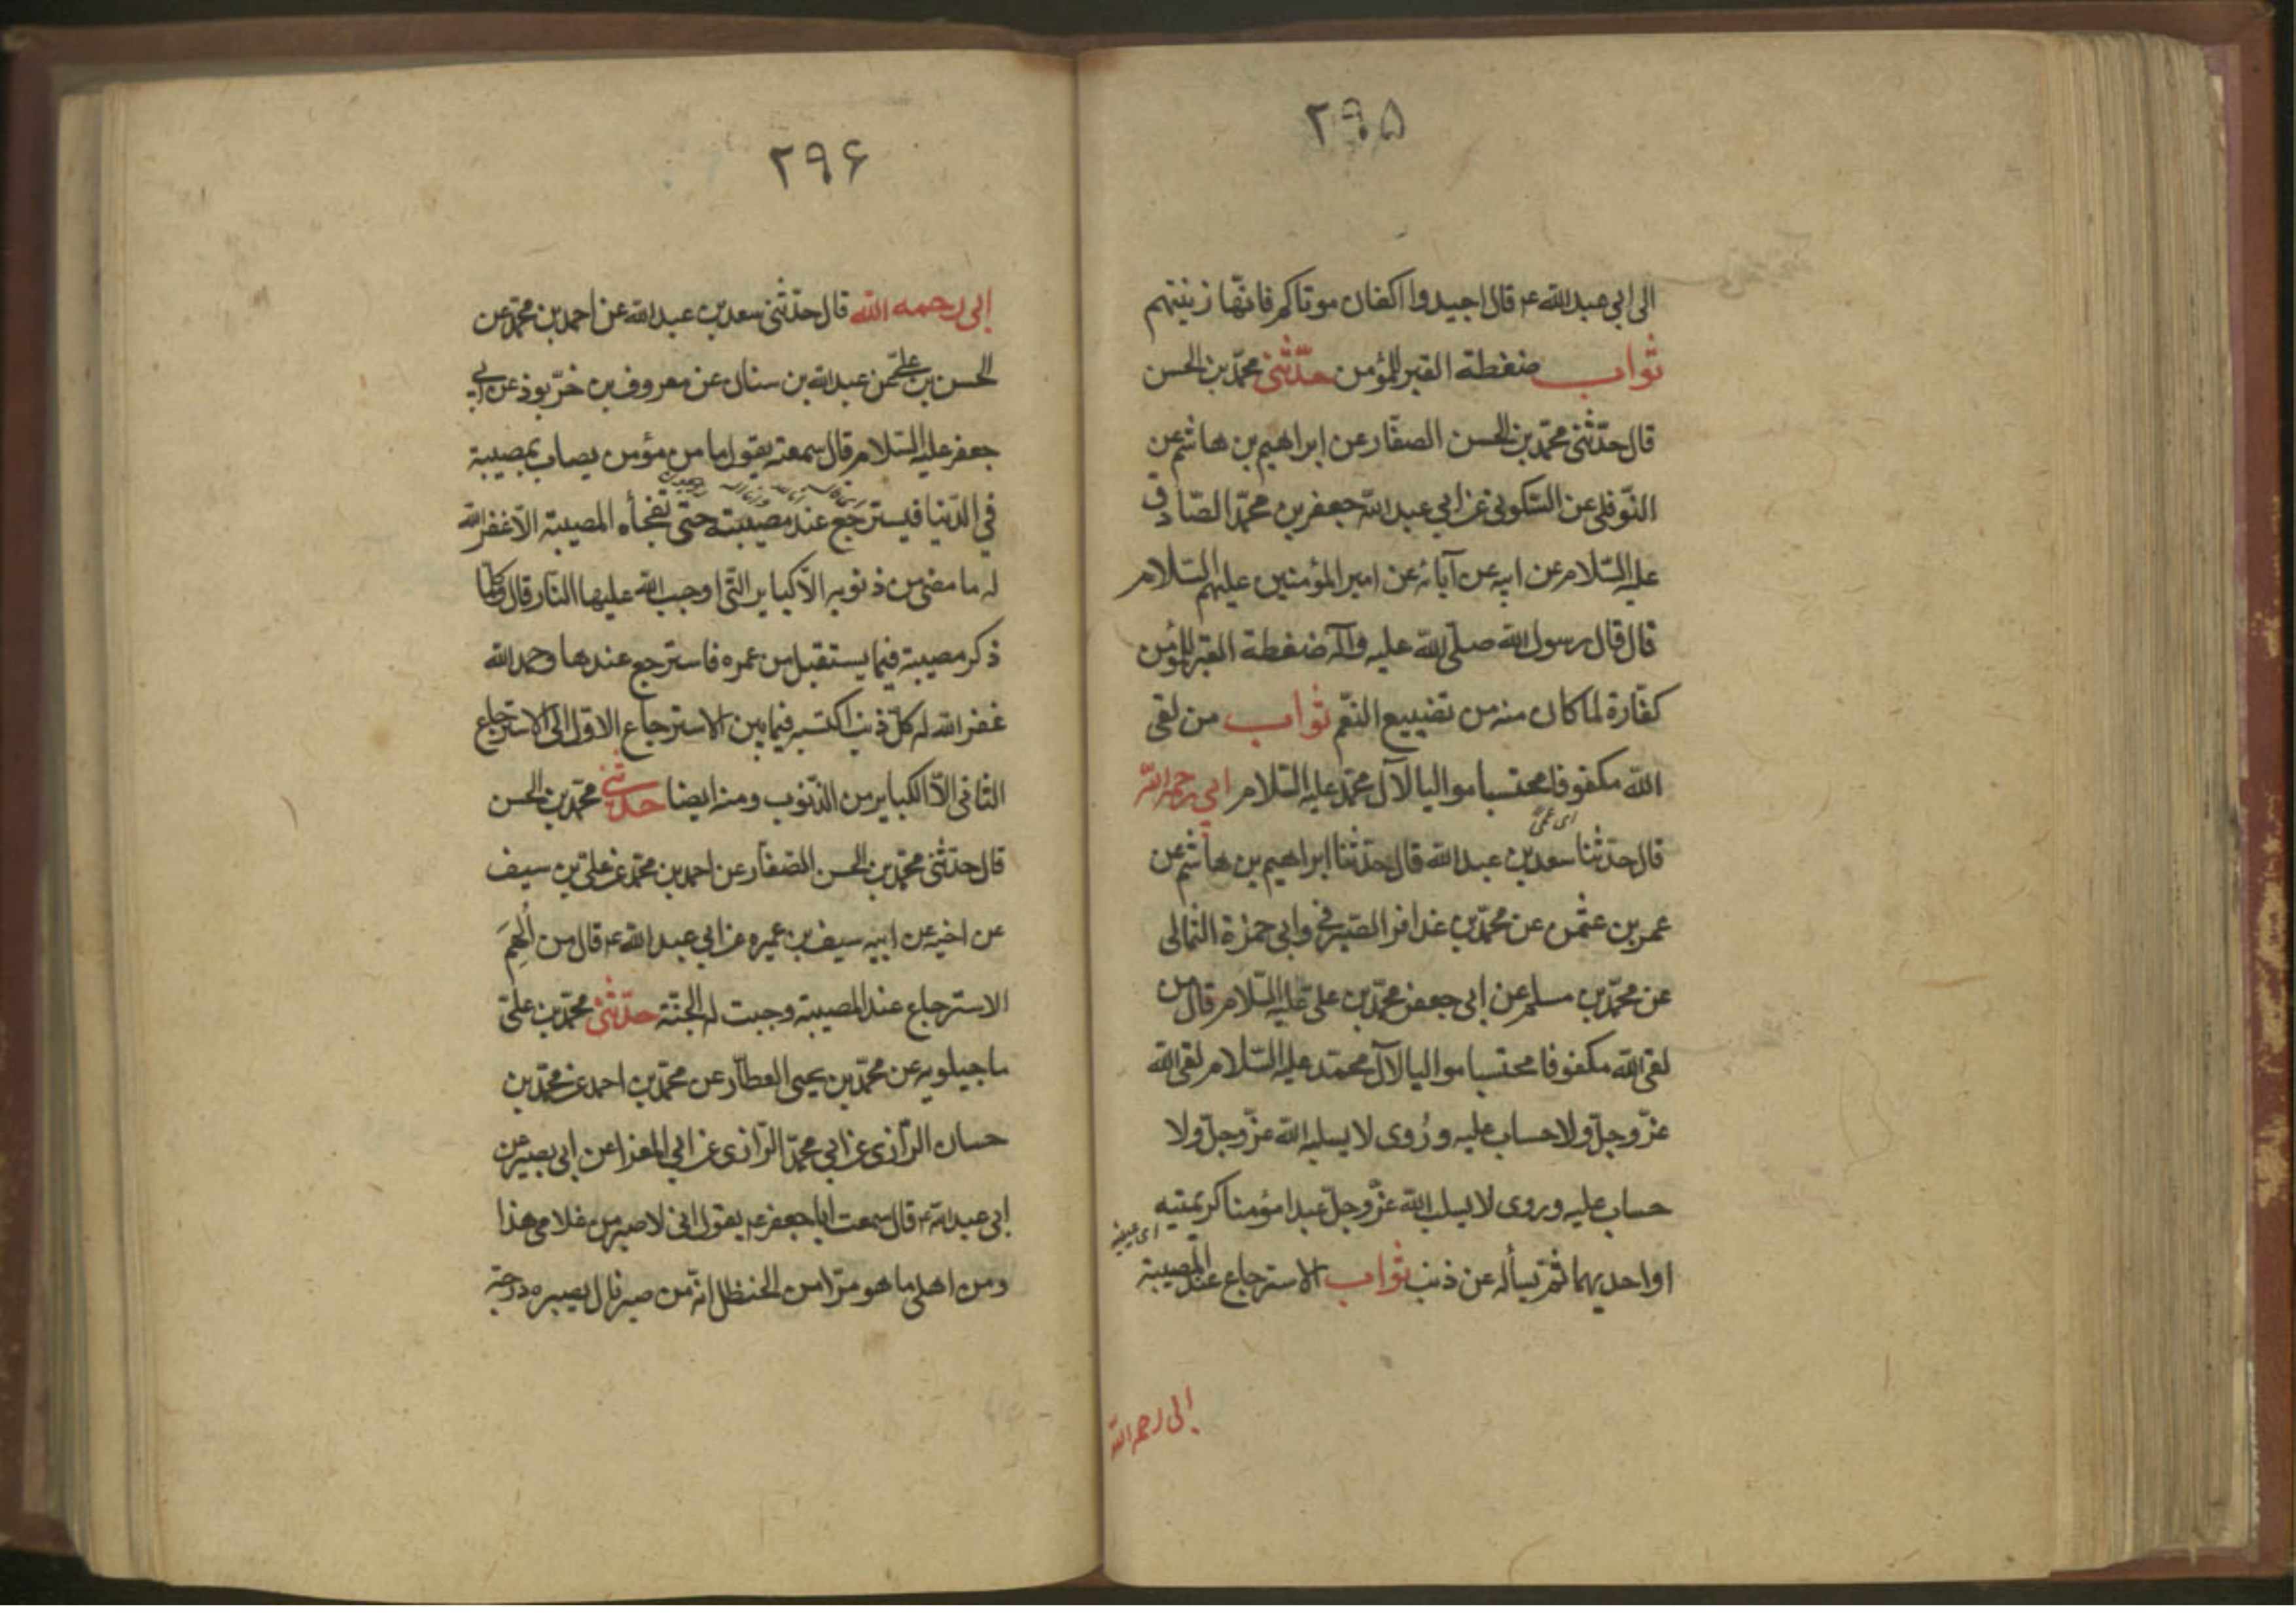 ۲۹۵
الى ابي عبد الله ع قال اجيدوا اكفان موتاكم فانّها زينتهم
ثواب ضغطة القبر للمؤمن حدّثنى محمّد بن الحسن
قال حدّثنى محمّد بن الحسن الصفّار عن ابراهيم بن هاشم عن
النّوفلى عن السّكونى عن ابي عبد الله جعفر بن محمّد الصّادق
عليه السّلام عن ابيه عن آبائه عن امير المؤمنين عليهم السّلام
قال قال رسول الله صلّى الله عليه وآله ضغطة القبر للمؤمن
كفّارة لما كان منه من تضييع النّعم ثواب من لقى
الله مكفوفا محتسبا مواليا لآل محمّد عليه السّلام ابي رحمه الله
اى عمى
قال حدّثنا سعد بن عبد الله قال حدّثنا ابراهيم بن هاشم عن
عمر بن عثمن عن محمّد بن عذافر الصّيرفى وابى حمزة الثمالى
عن محمّد بن مسلم عن ابى جعفر محمّد بن على عليه السّلام قال من
لقى الله مكفوفا محتسبا مواليا لآل محمّد عليه السّلام لقى الله
عزّ وجلّ ولا حساب عليه ورُوى لا يسلبه الله عزّ وجلّ ولا
حساب عليه وروى لا يسلب الله عزّ وجلّ عبدا مؤمنا كريمتيه
اى عينيه
او احديهما ثمّ يسأله عن ذنب ثواب الاسترجاع عند المصيبة
ابى رحمه الله
۲۹۶
ابى رحمه الله قال حدّثنى سعد بن عبد الله عن احمد بن محمّد عن
الحسن بن علىّ عن عبد الله بن سنان عن معروف بن خرّبوذ عن ابي
جعفر عليه السّلام قال سمعته يقول ما من مؤمن يصاب بمصيبة
فى الدّنيا فيسترجع عند مصيبته حتى تفجأه المصيبة الاّ غفر الله
له ما مضى من ذنوبه الاّ كباير التّى اوجب الله عليها النّار قال وكلّما
ذكر مصيبة فيما يستقبل من عمره فاسترجع عندها وحمد الله
غفر الله له كلّ ذنب اكتسبه فيما بين الاسترجاع الاوّل الى الاسترجاع
الثانى الاّ الكباير من الذّنوب ومنه ايضا حدّثنى محمّد بن الحسن
قال حدّثنى محمّد بن الحسن الصّفّار عن احمد بن محمّد عن علىّ بن سيف
عن اخيه عن ابيه سيف بن عميره عن ابي عبد الله ع قال من أُلهِمَ
الاسترجاع عند المصيبة وجبت له الجنّة حدّثنى محمّد بن علىّ
ماجيلويه عن محمّد بن يحيى العطّار عن محمّد بن احمد عن محمّد بن
حسان الرّازى عن ابي محمّد الرّازى عن ابي المغرا عن ابى بصير عن
ابى عبد الله ع قال سمعت ابا جعفر ع يقول انى لاصبر من غلامى هذا
ومن اهلى ما هو مرّا من الحنظل انّه من صبر نال بصبره درجة